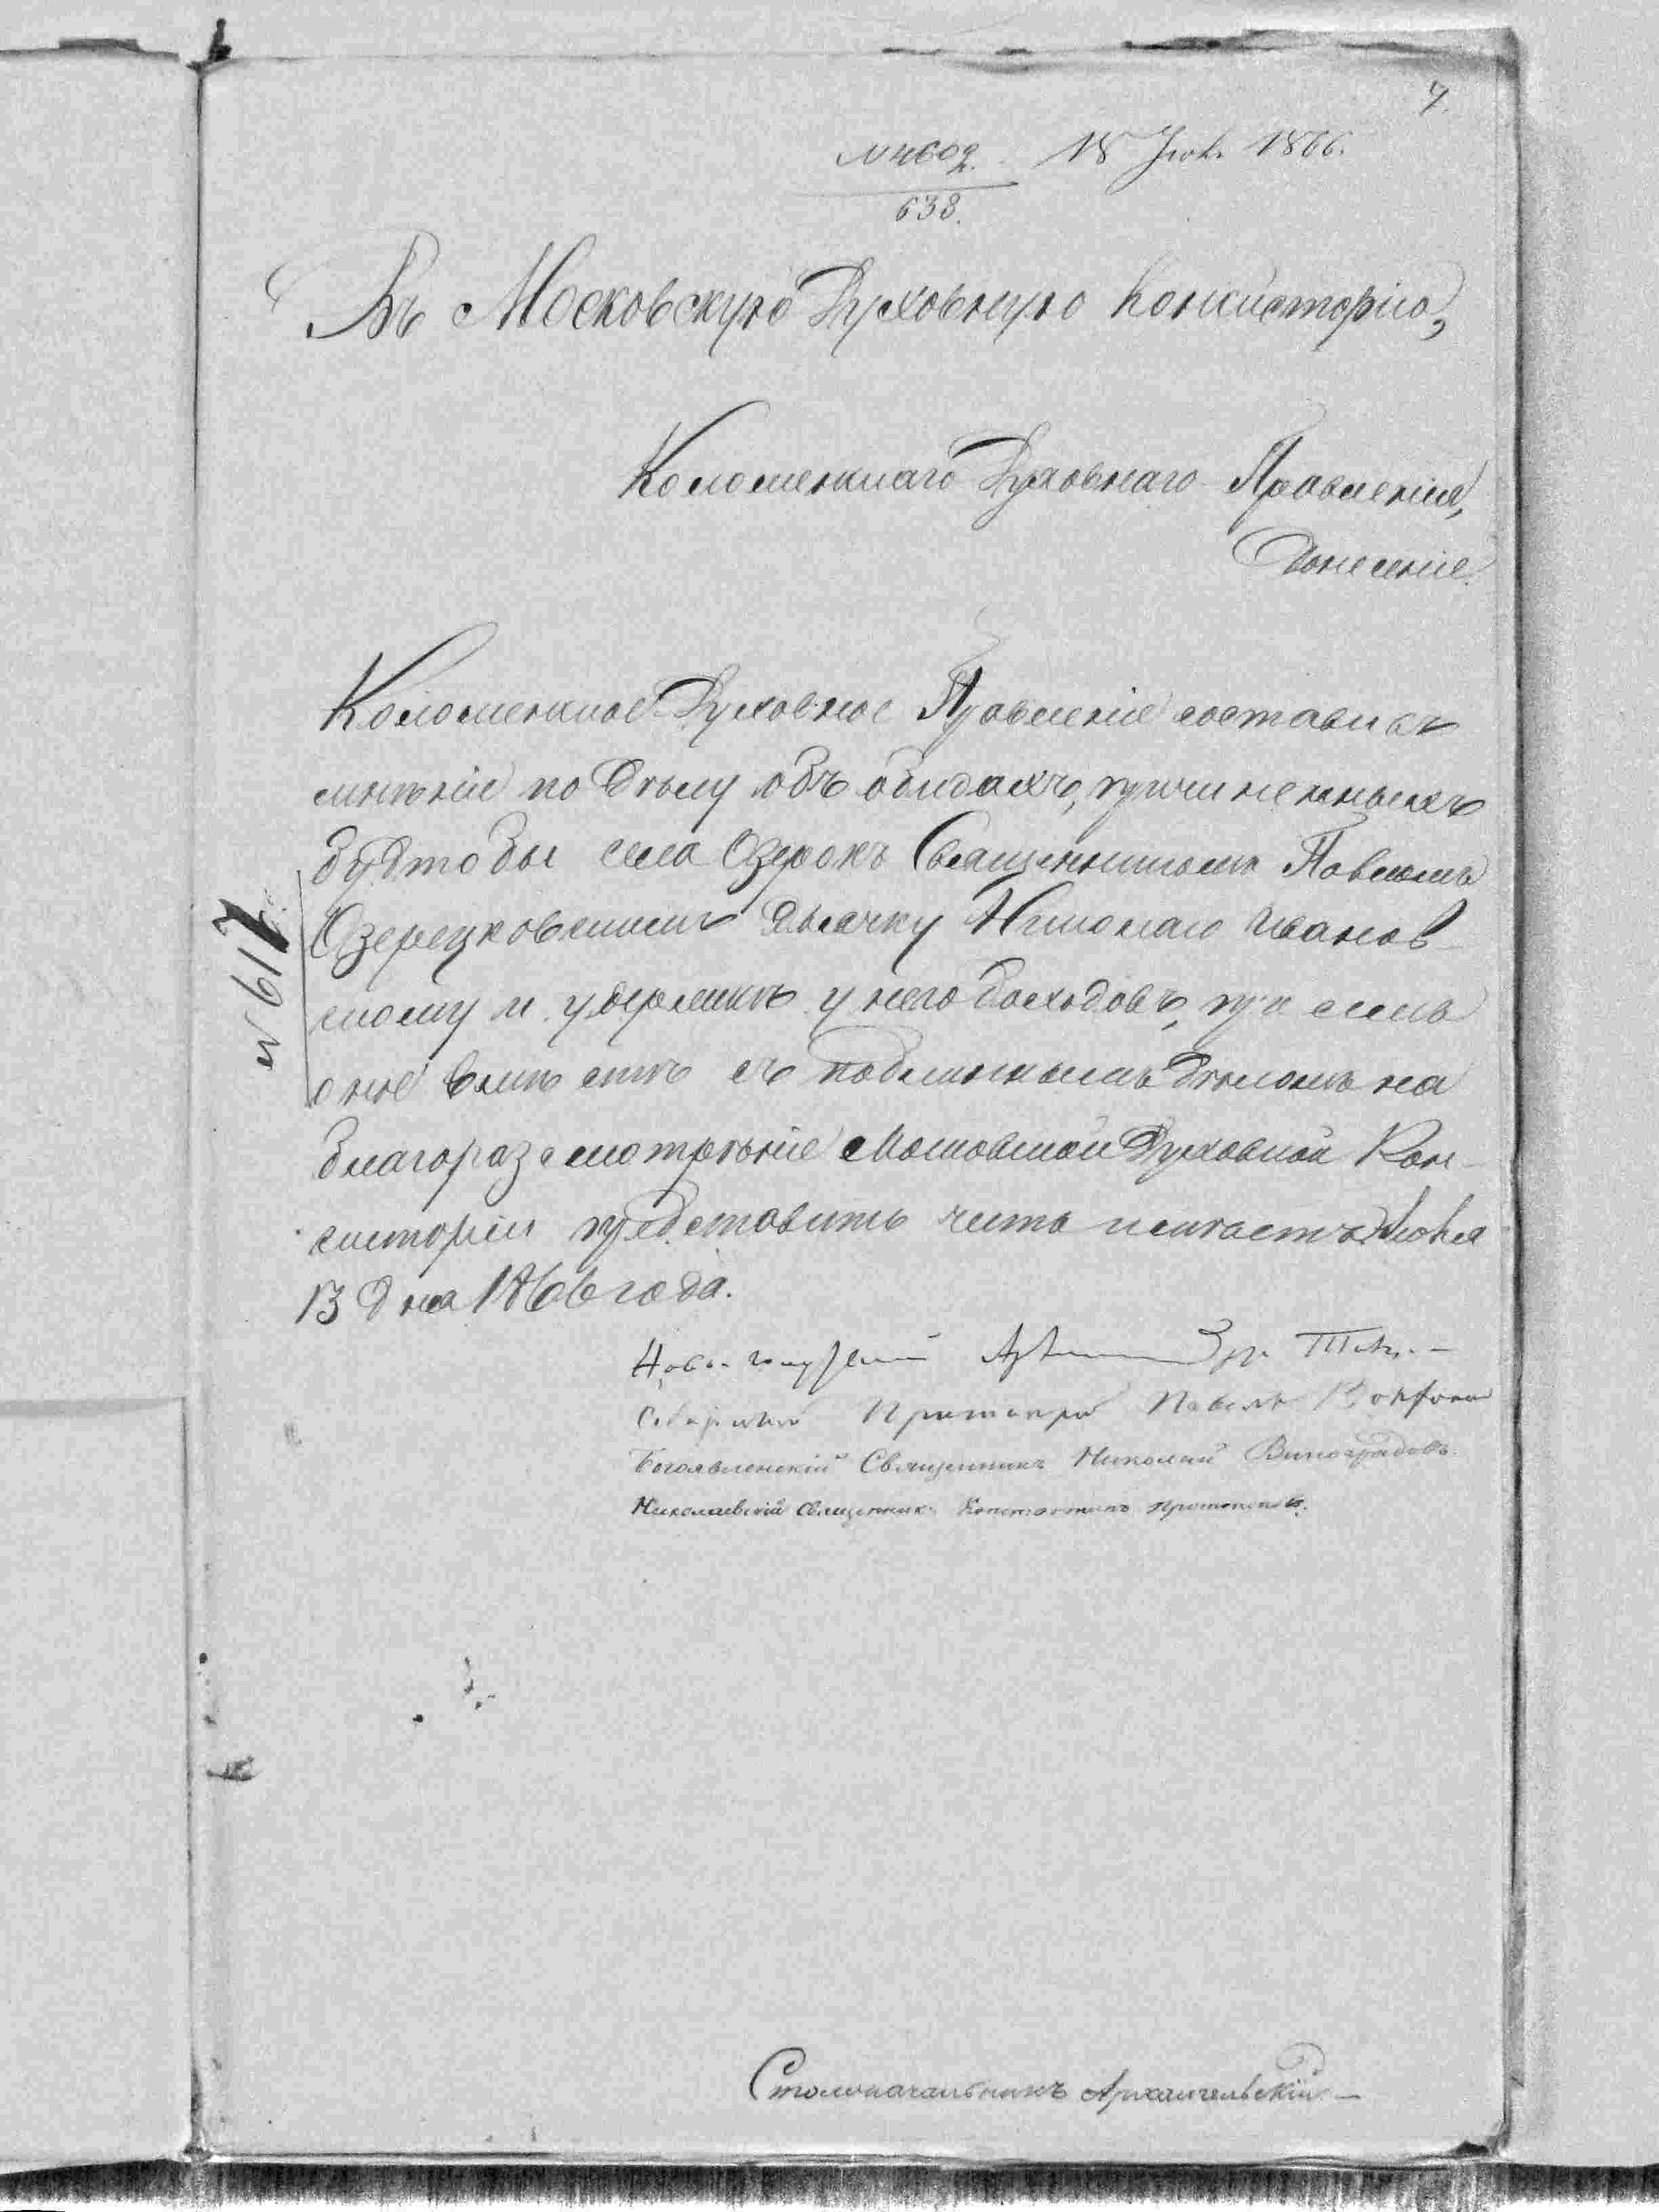 7.
N 4602. 18 Іюн. 1866.
638.
Въ Московскую Духовную Консисторію,
Коломенскаго Духовнаго Правленія,
Донесеніе.
Коломенское Духовное Правленіе составивъ
мнѣніе по дѣлу объ обидахъ, причиненныхъ
будтобы села Озерокъ Священникомъ Павломъ
Озерецковскимъ дьячку Николаю Иванов-
скому и удержаніи у него доходовъ, при семъ
оное вмѣстѣ съ подлиннымъ дѣломъ на
благоразсмотрѣніе Московской Духовной Кон-
систоріи представить честь имѣетъ. Іюня
13 дня 1866 года.
N 617
Протоіерей Павелъ
Богоявленскій Священникъ Николай Виноградовъ.
Николаевскій Священникъ Константинъ Протопоповъ.
Столоначальникъ Архангельскій